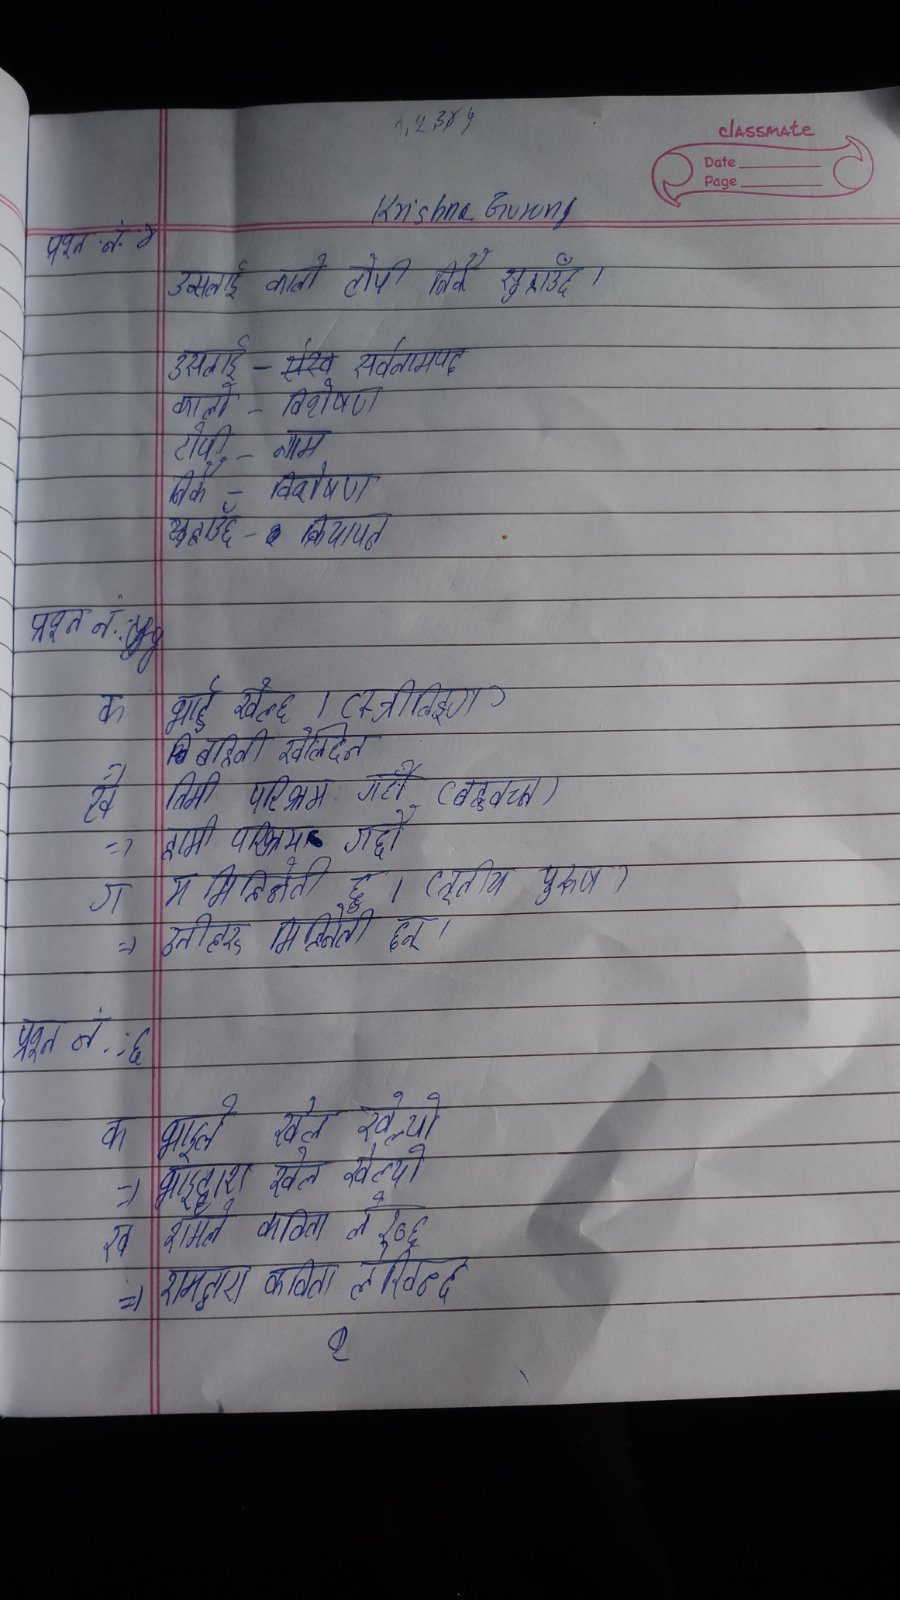 १,२,३४५
classmate
Date
Page
Krishna Gurung
प्रश्न नं. ४
उसलाई कालो टोपी निकै सुहाउँछ ।
उसलाई - सर्वनामपद
कालो - विशेषण
टोपी - नाम
निकै - विशेषण
सुहाउँछ - क्रियापद
प्रश्न नं. :- ५
क भाई खेल्छ । (स्त्रीलिङ्ग)
=) बहिनी खेल्दिन
ख तिमी परिश्रम गर्छौ (बहुवचन)
=) हामी परिश्रम गर्छौ
ग म मिहिनेती छु । (तृतीय पुरुष)
=) उनीहरु मिहिनेती छन् ।
प्रश्न नं. :- ६
क भाइले खेल खेल्यो
=) भाइद्वारा खेल खेल्यो
ख रामले कविता लेख्छ
=) रामद्वारा कविता लेखिन्छ